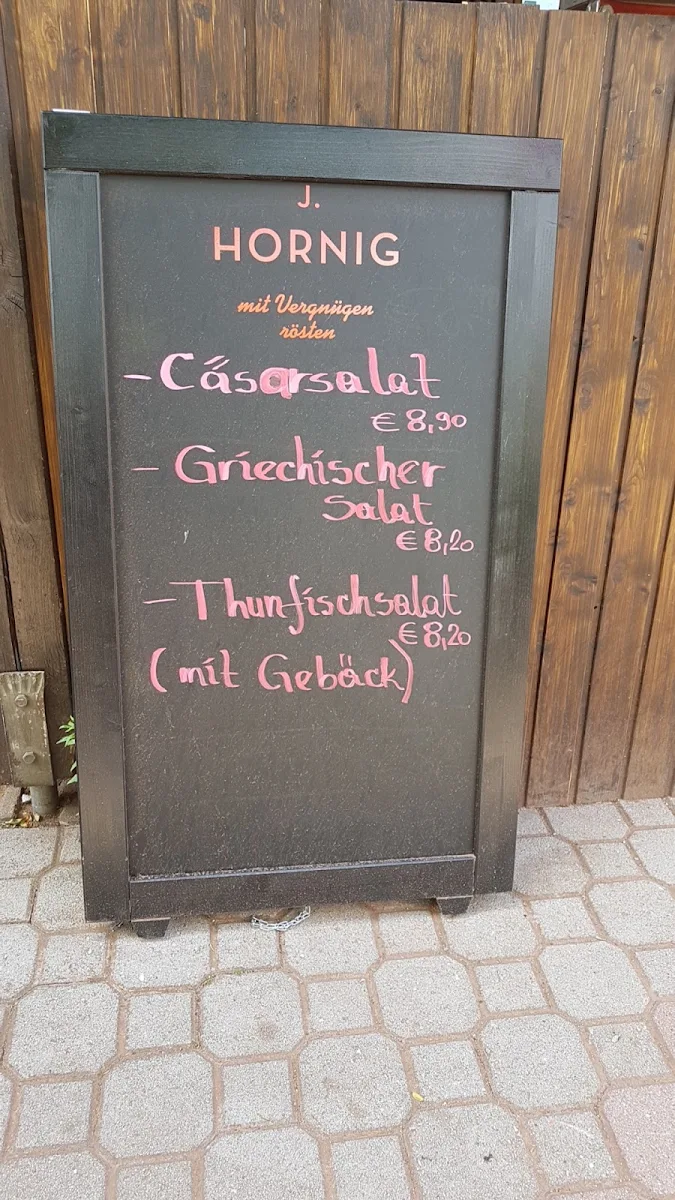 J.
HORNIG
mit Vergnügen
rösten
- Cäsarsalat
€ 8,90
- Griechischer
Salat
€ 8,20
- Thunfischsalat
€ 8,20
(mit Gebäck)